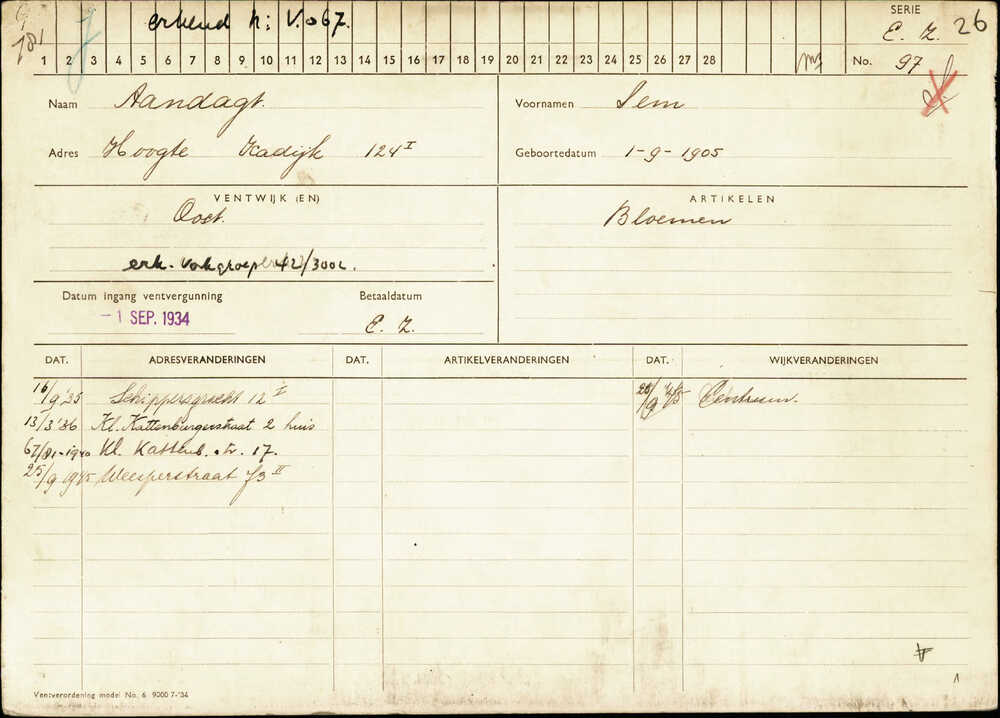 erkend h: V.067.
SERIE
E. Z. 26
181
1 2 3 4 5 6 7 8 9 10 11 12 13 14 15 16 17 18 19 20 21 22 23 24 25 26 27 28
No. 97
Naam Aandagt.
Voornamen Sem
Adres Hoogte Kadijk 124 I
Geboortedatum 1-9-1905
VENTWIJK (EN)
Oost.
ARTIKELEN
Bloemen
erk. Vakgroep 42/300c.
Datum ingang ventvergunning
Betaaldatum
-1 SEP. 1934
E. Z.
DAT. ADRESVERANDERINGEN DAT. ARTIKELVERANDERINGEN DAT. WIJKVERANDERINGEN
16/9 '35 Schippersgracht 12 I
25/9 Centrum.
13/3 '36 Kl. Kattenburgerstraat 2 huis
Kl. Kattenb. str. 17.
25/9 1945 Weesperstraat 73 II
Ventverordening model No. 6 9000 7-'34
1